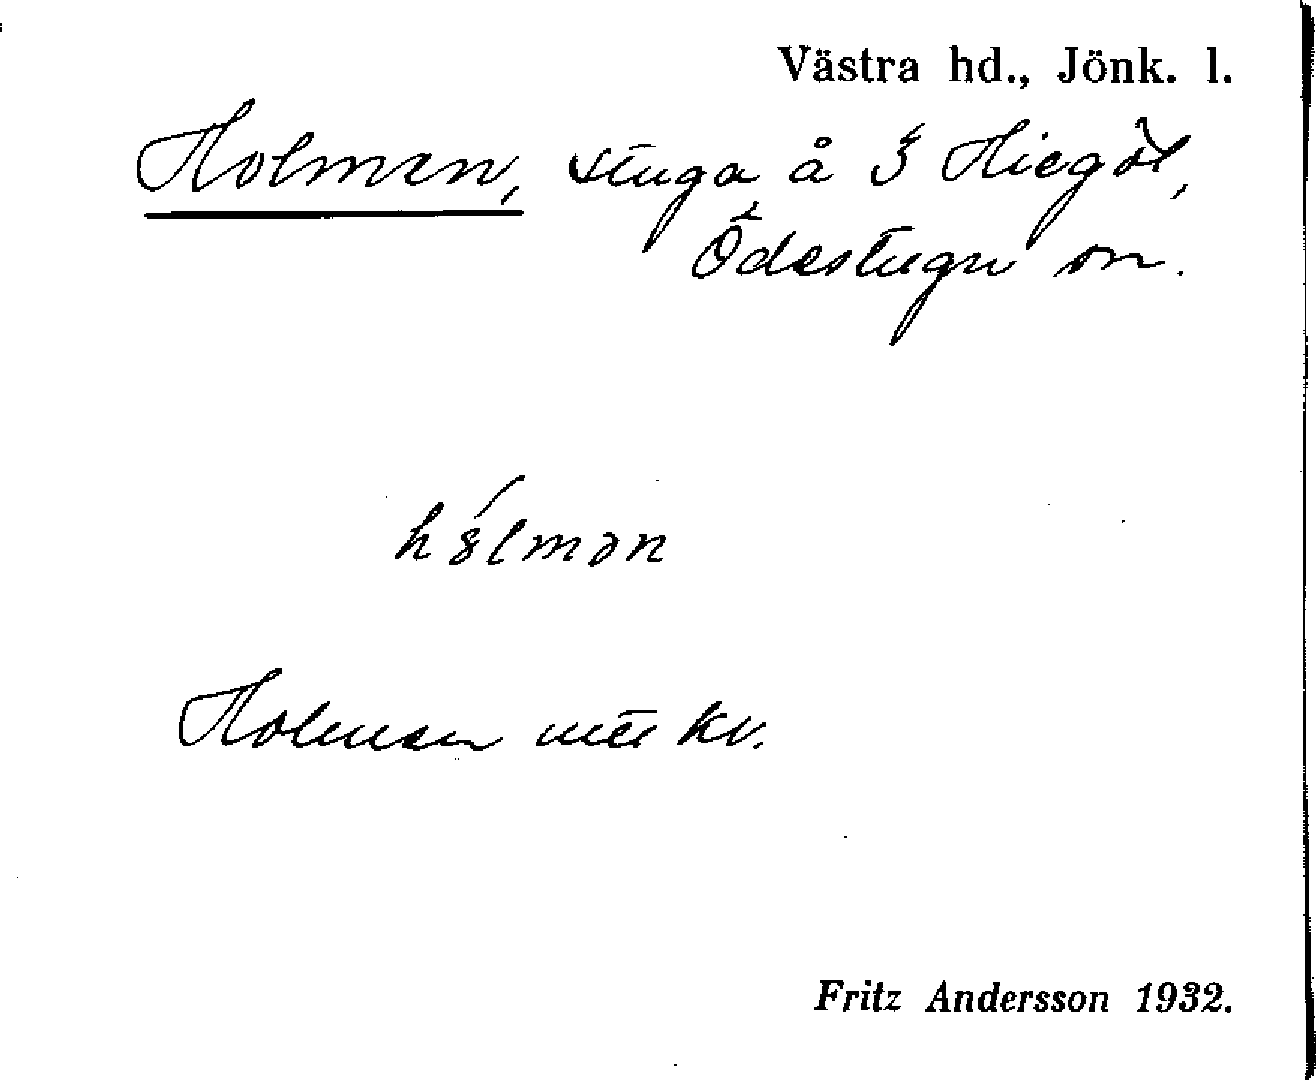 Västra hd., Jönk. l.
Holmen, stuga å 3 Hiegöl,
Ödestugu sn.
hólmən
Holmen utė kv.
Fritz Andersson 1932.